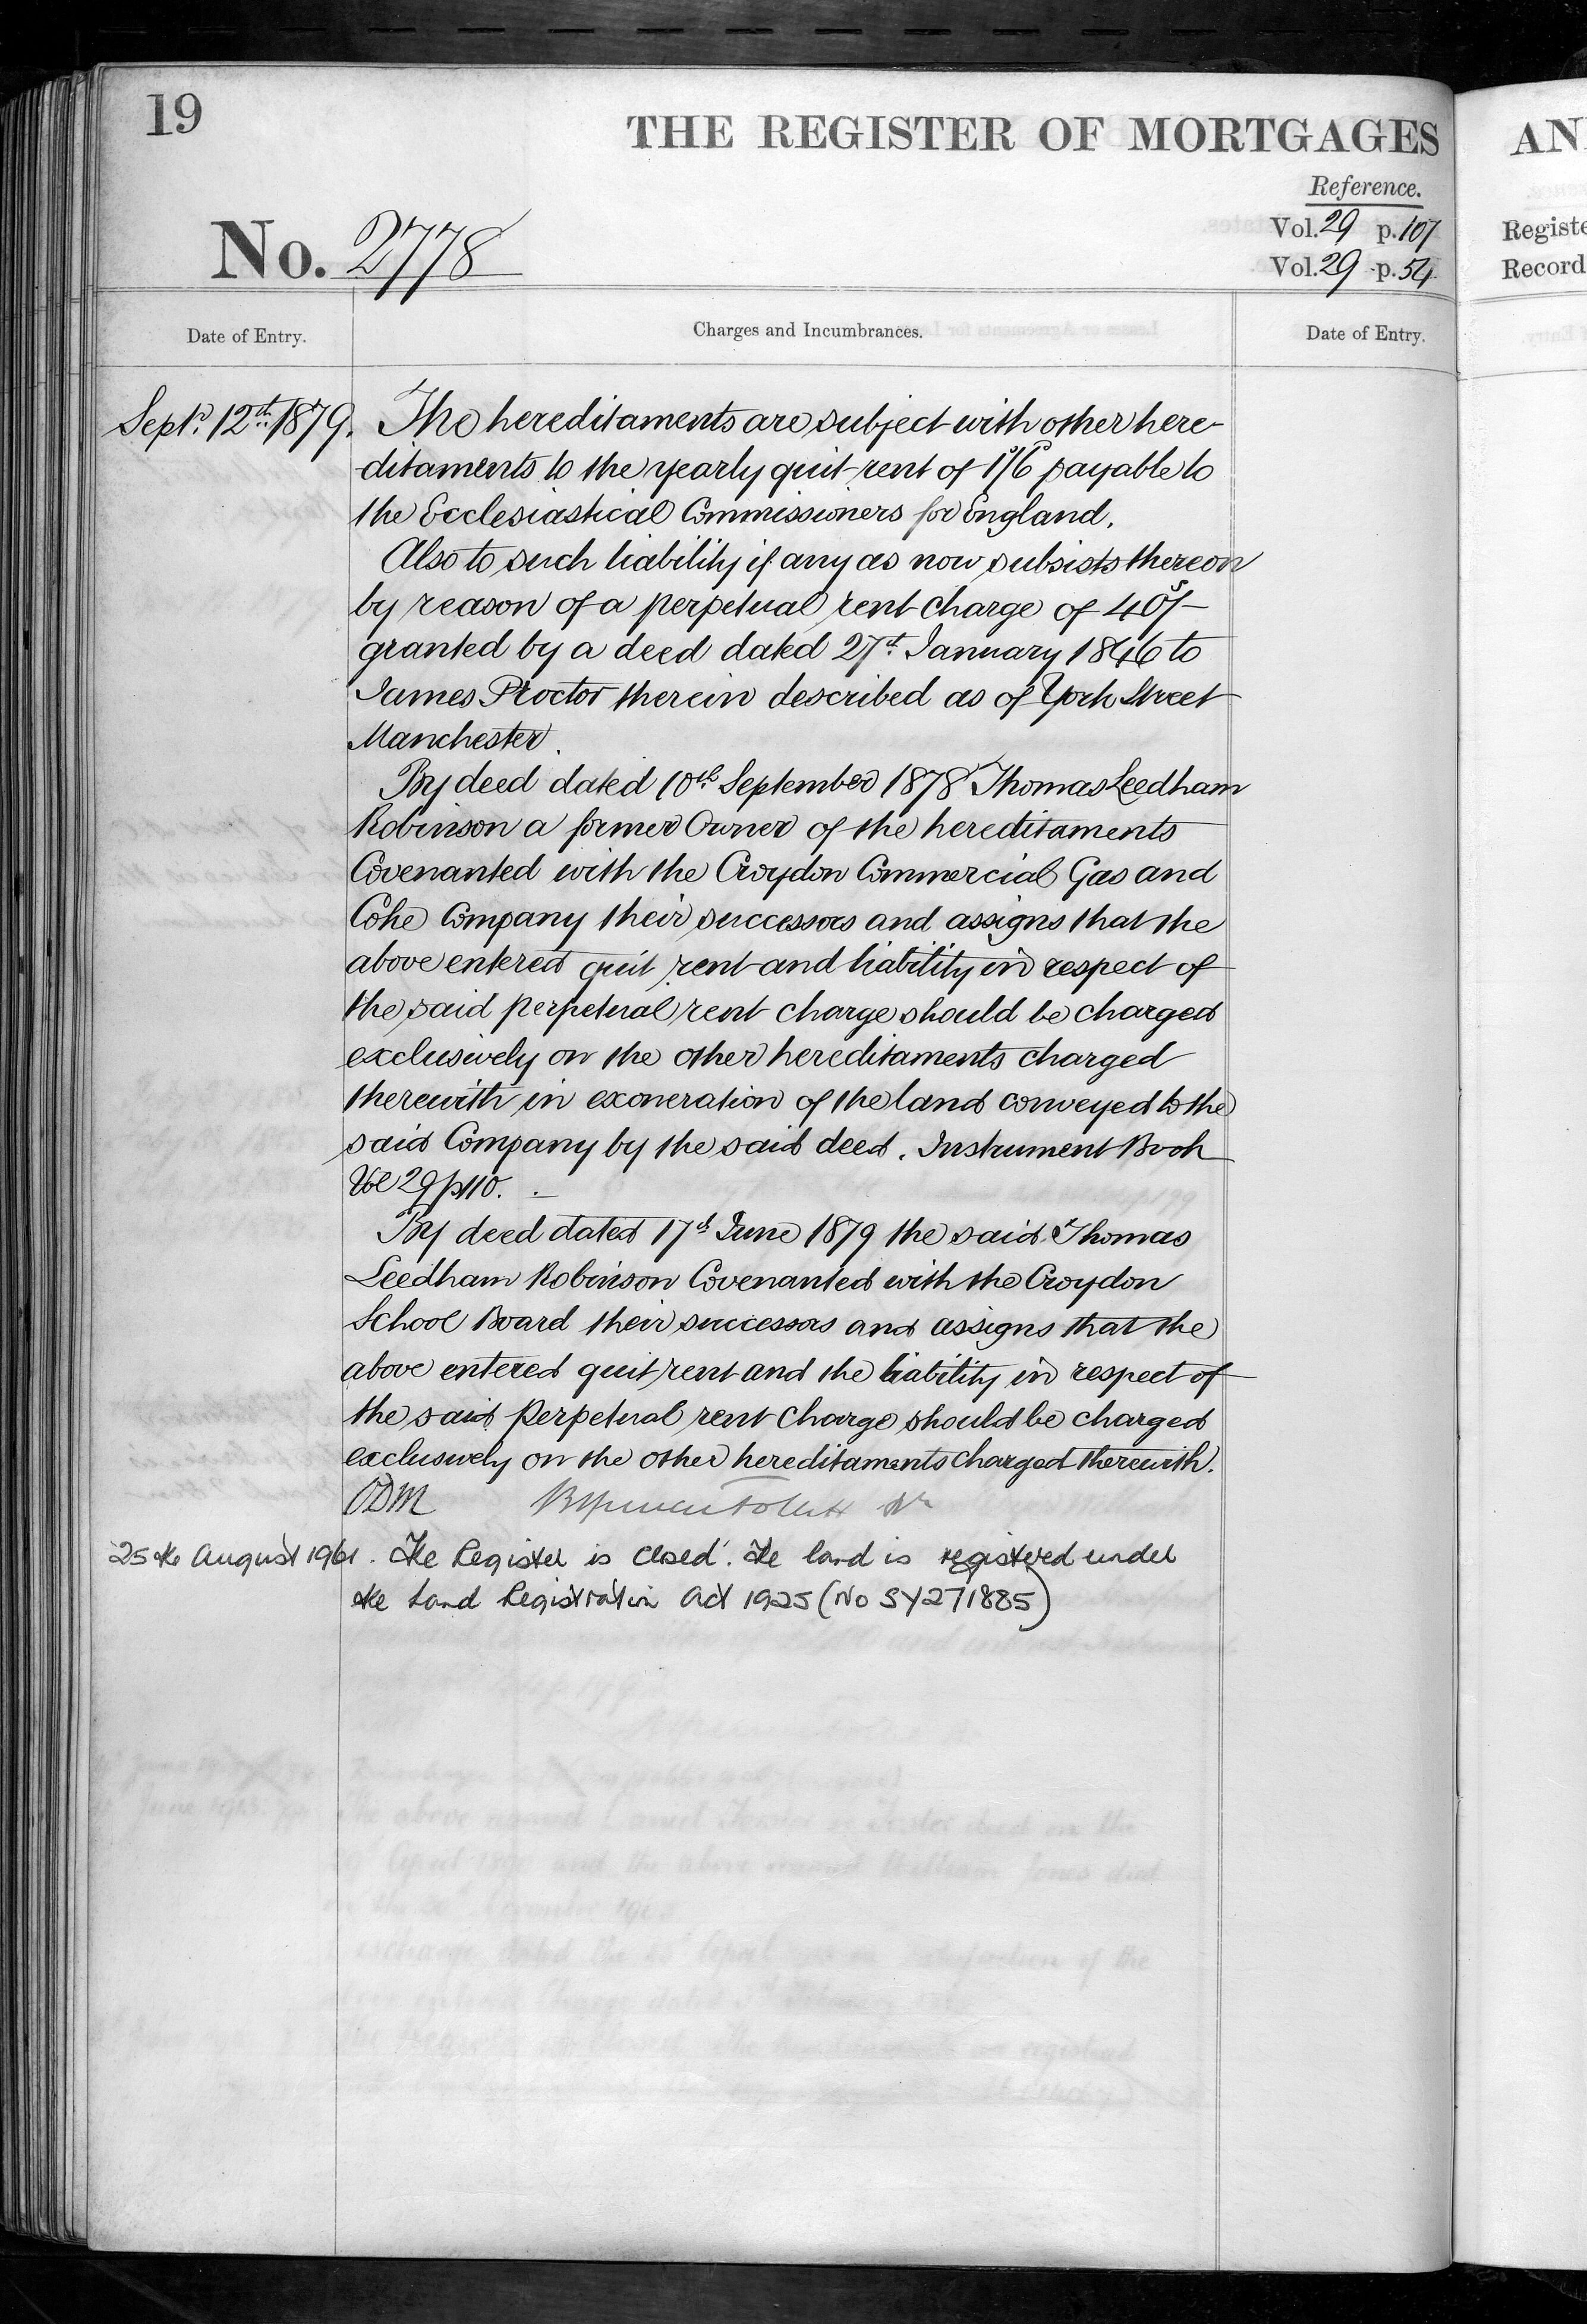 19
THE REGISTER OF MORTGAGES
AN
Reference.
No. 2778
Vol. 29 p. 107
Vol. 29 p. 54
Registe
Record
Date of Entry.
Charges and Incumbrances.
Date of Entry.
Septr. 12th 1879.
The hereditaments are subject with other here-
ditaments to the yearly quit rent of 1s/6d payable to
the Ecclesiastical Commissioners for England.
Also to such liability if any as now subsists thereon
by reason of a perpetual rent charge of 40s/-
granted by a deed dated 27th January 1846 to
James Proctor therein described as of York Street
Manchester.
By deed dated 10th September 1878 Thomas Leedham
Robinson a former Owner of the hereditaments
Covenanted with the Croydon Commercial Gas and
Coke Company their successors and assigns that the
above entered quit rent and liability in respect of
the said perpetual rent charge should be charged
exclusively on the other hereditaments charged
therewith in exoneration of the land conveyed to the
said Company by the said deed. Instrument Book
Vol 29 p110.
By deed dated 17th June 1879 the said Thomas
Leedham Robinson Covenanted with the Croydon
School Board their successors and assigns that the
above entered quit rent and the liability in respect of
the said perpetual rent charge should be charged
exclusively on the other hereditaments charged therewith.
25th August 1961. The Register is closed. The land is registered under
the Land Registration Act 1925 (No SY271885)